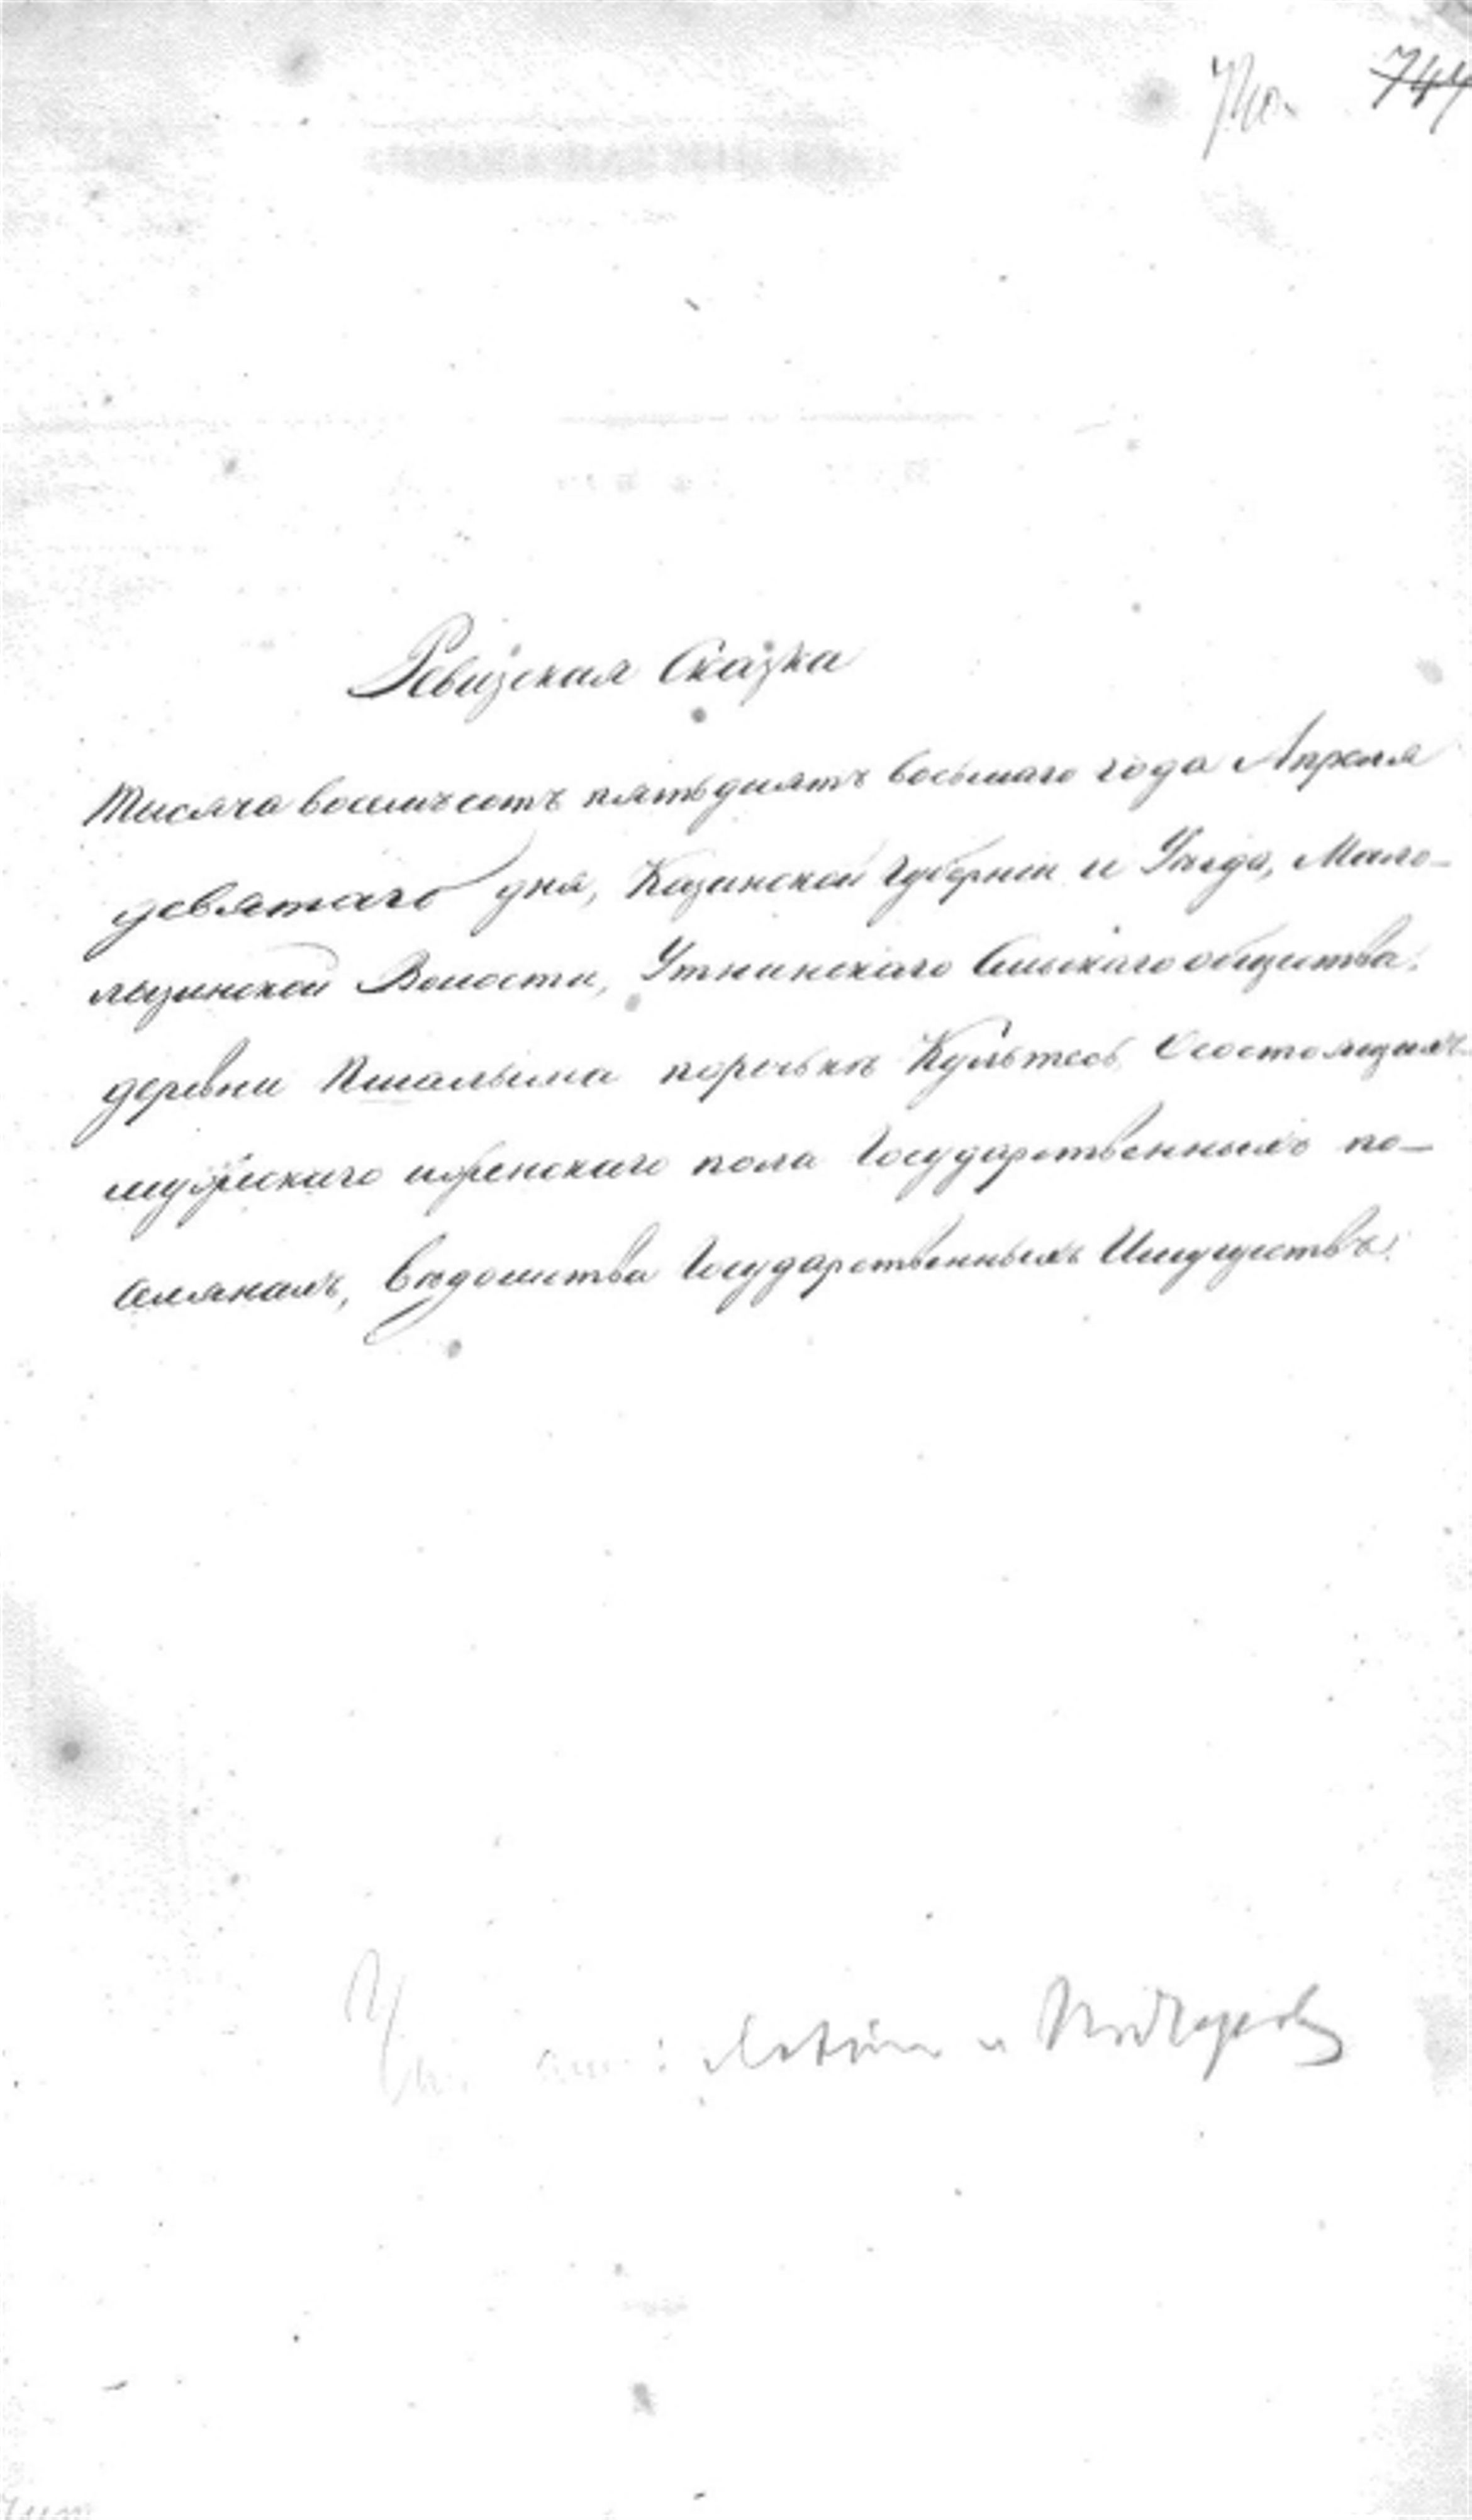 744
Ревизская Сказка
Тысяча восемьсотъ пятьдсятъ восьмаго года Апреля
девятаго дня, Казанской Губерніи и Уезда, Мало-
лызинской Волости, Утнинскаго Сельскаго общества,
деревни Пшалыма поречькѣ Культесь, Осостоящихъ
мужскаго иженскаго пола Государственныхъ по-
селянахъ, Ведомства Государственныхъ Имуществъ.